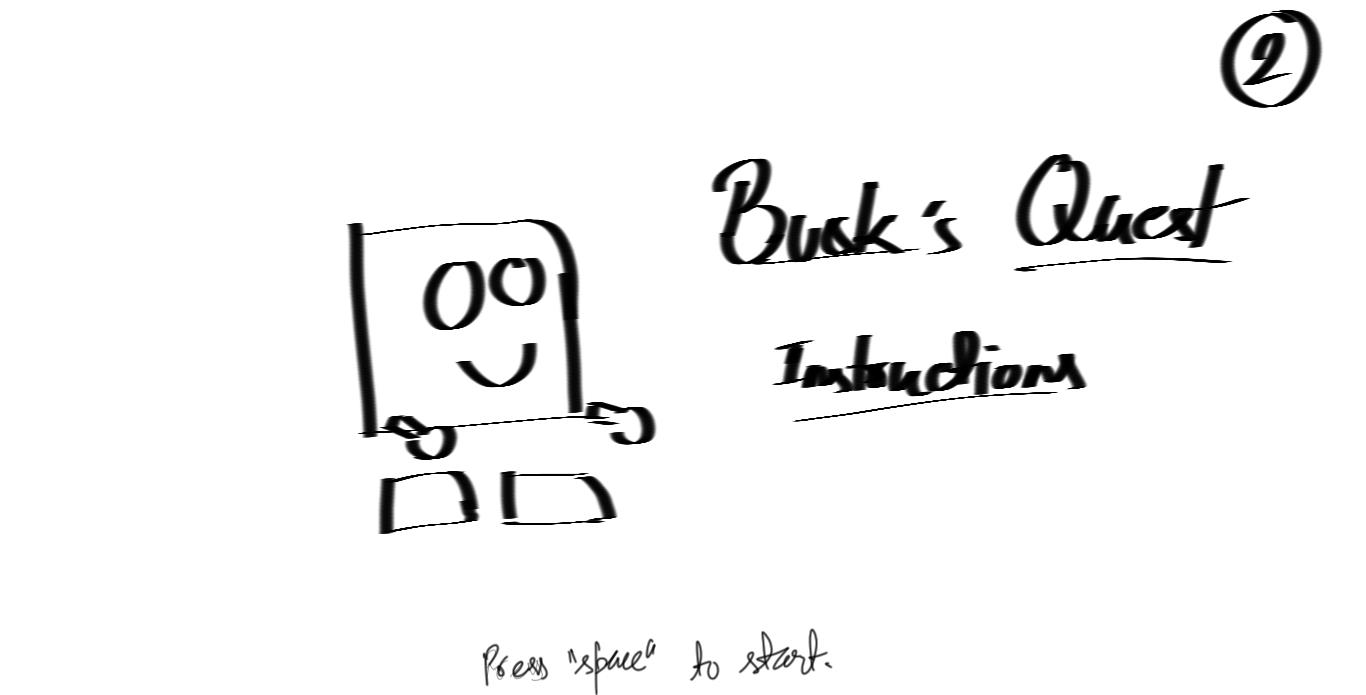 2
Busk's Quest
Instructions
Press "space" to start.